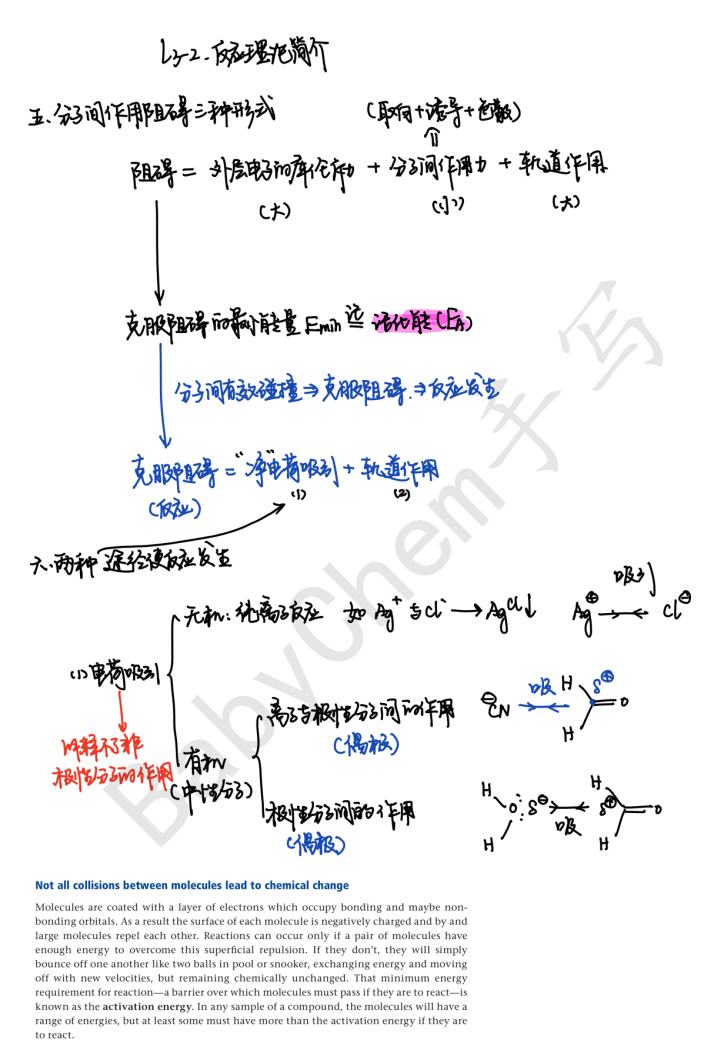 L5-2.反应理论简介
五、分子间作用阻碍三种形式 (取向+诱导+色散)
阻碍 = 外层电子间库伦斥力 + 分子间作用力 + 轨道作用
(大) (小) (大)
克服阻碍的最小能量 Emin 记 = 活化能(EA)
分子间有效碰撞 ⇒ 克服阻碍 ⇒ 反应发生
克服阻碍 = "净"电荷吸引 + 轨道作用
(反应) (1) (2)
六、两种途径使反应发生
无机: 纯离子反应 如 Ag⁺ 与 Cl⁻ → AgCl↓ Ag⊕ 吸引 Cl⊖
(1) 电荷吸引
离子与极性分子间的作用 ⊖CN 吸 H δ⊕ O
(偶极) H
解释不了非
极性分子间作用
有机
(中性分子)
极性分子间的作用 H O: δ⊖ 吸 H δ⊕ O
(偶极) H H
BabyChem手写
Not all collisions between molecules lead to chemical change
Molecules are coated with a layer of electrons which occupy bonding and maybe non-
bonding orbitals. As a result the surface of each molecule is negatively charged and by and
large molecules repel each other. Reactions can occur only if a pair of molecules have
enough energy to overcome this superficial repulsion. If they don't, they will simply
bounce off one another like two balls in pool or snooker, exchanging energy and moving
off with new velocities, but remaining chemically unchanged. That minimum energy
requirement for reaction—a barrier over which molecules must pass if they are to react—is
known as the activation energy. In any sample of a compound, the molecules will have a
range of energies, but at least some must have more than the activation energy if they are
to react.